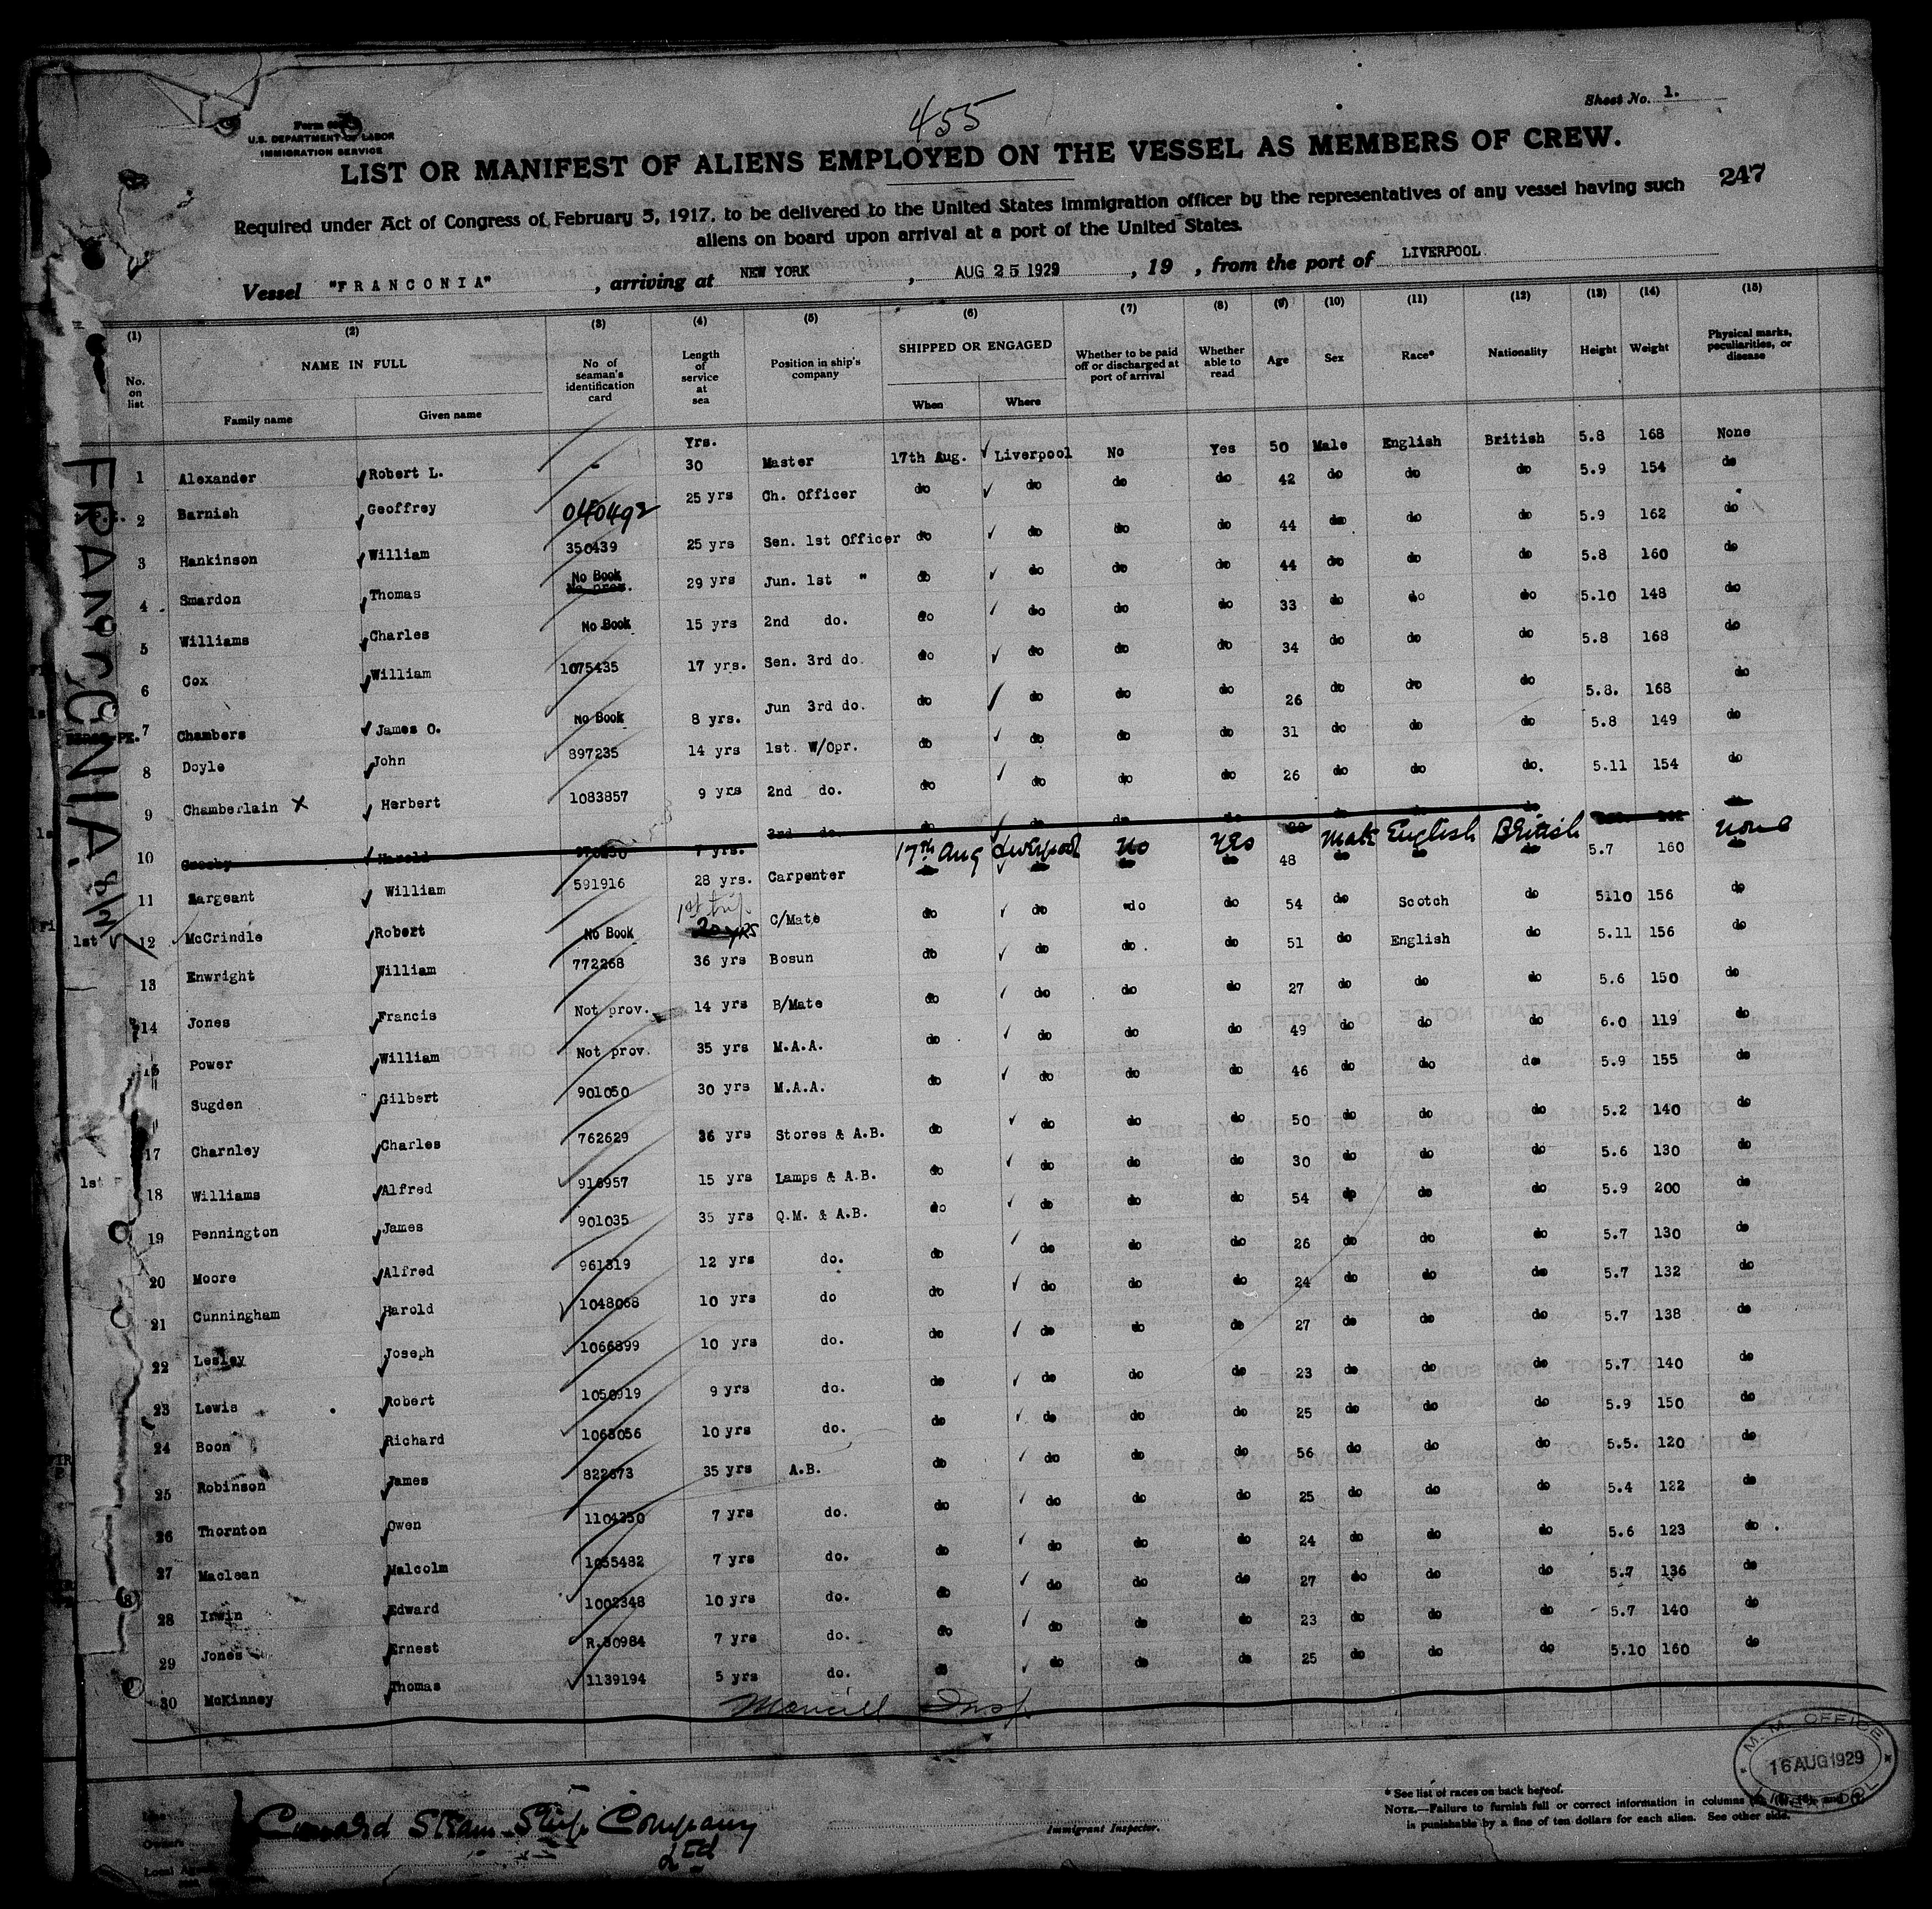 455
Sheet No. 1.
U.S. DEPARTMENT OF LABOR
IMMIGRATION SERVICE
LIST OR MANIFEST OF ALIENS EMPLOYED ON THE VESSEL AS MEMBERS OF CREW.
247
Required under Act of Congress of February 5, 1917, to be delivered to the United States immigration officer by the representatives of any vessel having such
aliens on board upon arrival at a port of the United States.
Vessel "FRANCONIA", arriving at NEW YORK, AUG 25 1929, 19 , from the port of LIVERPOOL
(1) (2) (3) (4) (5) (6) (7) (8) (9) (10) (11) (12) (13) (14) (15)
No. on list NAME IN FULL Family name Given name No. of seaman's identification card Length of service at sea Position in ship's company SHIPPED OR ENGAGED When Where Whether to be paid off or discharged at port of arrival Whether able to read Age Sex Race* Nationality Height Weight Physical marks, peculiarities, or disease
Yrs.
1 Alexander Robert L. - 30 Master 17th Aug. Liverpool No Yes 50 Male English British 5.8 168 None
2 Barnish Geoffrey 040492 25 yrs Ch. Officer do do do do 42 do do do 5.9 154 do
3 Hankinson William 350439 25 yrs Sen. 1st Officer do do do do 44 do do do 5.9 162 do
4 Smardon Thomas No Book 29 yrs Jun. 1st " do do do do 44 do do do 5.8 160 do
5 Williams Charles No Book 15 yrs 2nd do. do do do do 33 do do do 5.10 148 do
6 Cox William 1075435 17 yrs. Sen. 3rd do do do do do 34 do do do 5.8 168 do
7 Chambers James O. No Book 8 yrs. Jun 3rd do. do do do do 26 do do do 5.8. 168 do
8 Doyle John 897235 14 yrs 1st. W/Opr. do do do do 31 do do do 5.8 149 do
9 Chamberlain X Herbert 1083857 9 yrs 2nd do. do do do do 26 do do do. 5.11 154 do
10 Crosby Harold 7 yrs. 3rd do. do do do do do do do
17th Aug Liverpool No Yes Male English British None
11 Sargeant William 591916 28 yrs. Carpenter do do do do 48 do do do 5.7 160 do
1st trip
12 McCrindle Robert No Book 20 yrs C/Mate do do do do 54 do Scotch do 5110 156 do
13 Enwright William 772268 36 yrs Bosun do do do do 51 do English do 5.11 156 do
14 Jones Francis Not prov. 14 yrs B/Mate do do do do 27 do do do 5.6 150 do
15 Power William Not prov. 35 yrs M.A.A. do do do do 49 do do do 6.0 119 do
Sugden Gilbert 901050 30 yrs M.A.A. do do do do 46 do do do 5.9 155 do
17 Charnley Charles 762629 36 yrs Stores & A.B. do do do do 50 do do do 5.2 140 do
18 Williams Alfred 916957 15 yrs Lamps & A.B. do do do do 30 do do do 5.6 130 do
19 Pennington James 901035 35 yrs Q.M. & A.B. do do do do 54 do do do 5.9 200 do
20 Moore Alfred 961319 12 yrs do. do do do do 26 do do do 5.7 130 do
21 Cunningham Harold 1048068 10 yrs do do do do do 24 do do do 5.7 132 do
22 Lesley Joseph 1066899 10 yrs do. do do do do 27 do do do 5.7 138 do
23 Lewis Robert 1050919 9 yrs do. do do do do 23 do do do 5.7 140 do
24 Boon Richard 1063056 10 yrs do. do do do do 25 do do do 5.9 150 do
25 Robinson James 822673 35 yrs A.B. do do do do 56 do do do 5.5. 120 do
26 Thornton Owen 1104250 7 yrs do. do do do do 25 do do do 5.4 122 do
27 Maclean Malcolm 1055482 7 yrs do. do do do do 24 do do do 5.6 123 do
28 Irwin Edward 1002348 10 yrs do. do do do do 27 do do do 5.7 136 do
29 Jones Ernest R.30984 7 yrs do. do do do do 23 do do do 5.7 140 do
30 McKinney Thomas 1139194 5 yrs do. do do do do 25 do do do 5.10 160 do
FRANCONIA 8/25
Insp.
M.M. OFFICE
16 AUG 1929
LIVERPOOL
Cunard Steam Ship Company
Ltd
Immigrant Inspector.
* See list of races on back hereof.
NOTE.—Failure to furnish full or correct information in columns
is punishable by a fine of ten dollars for each alien. See other side.